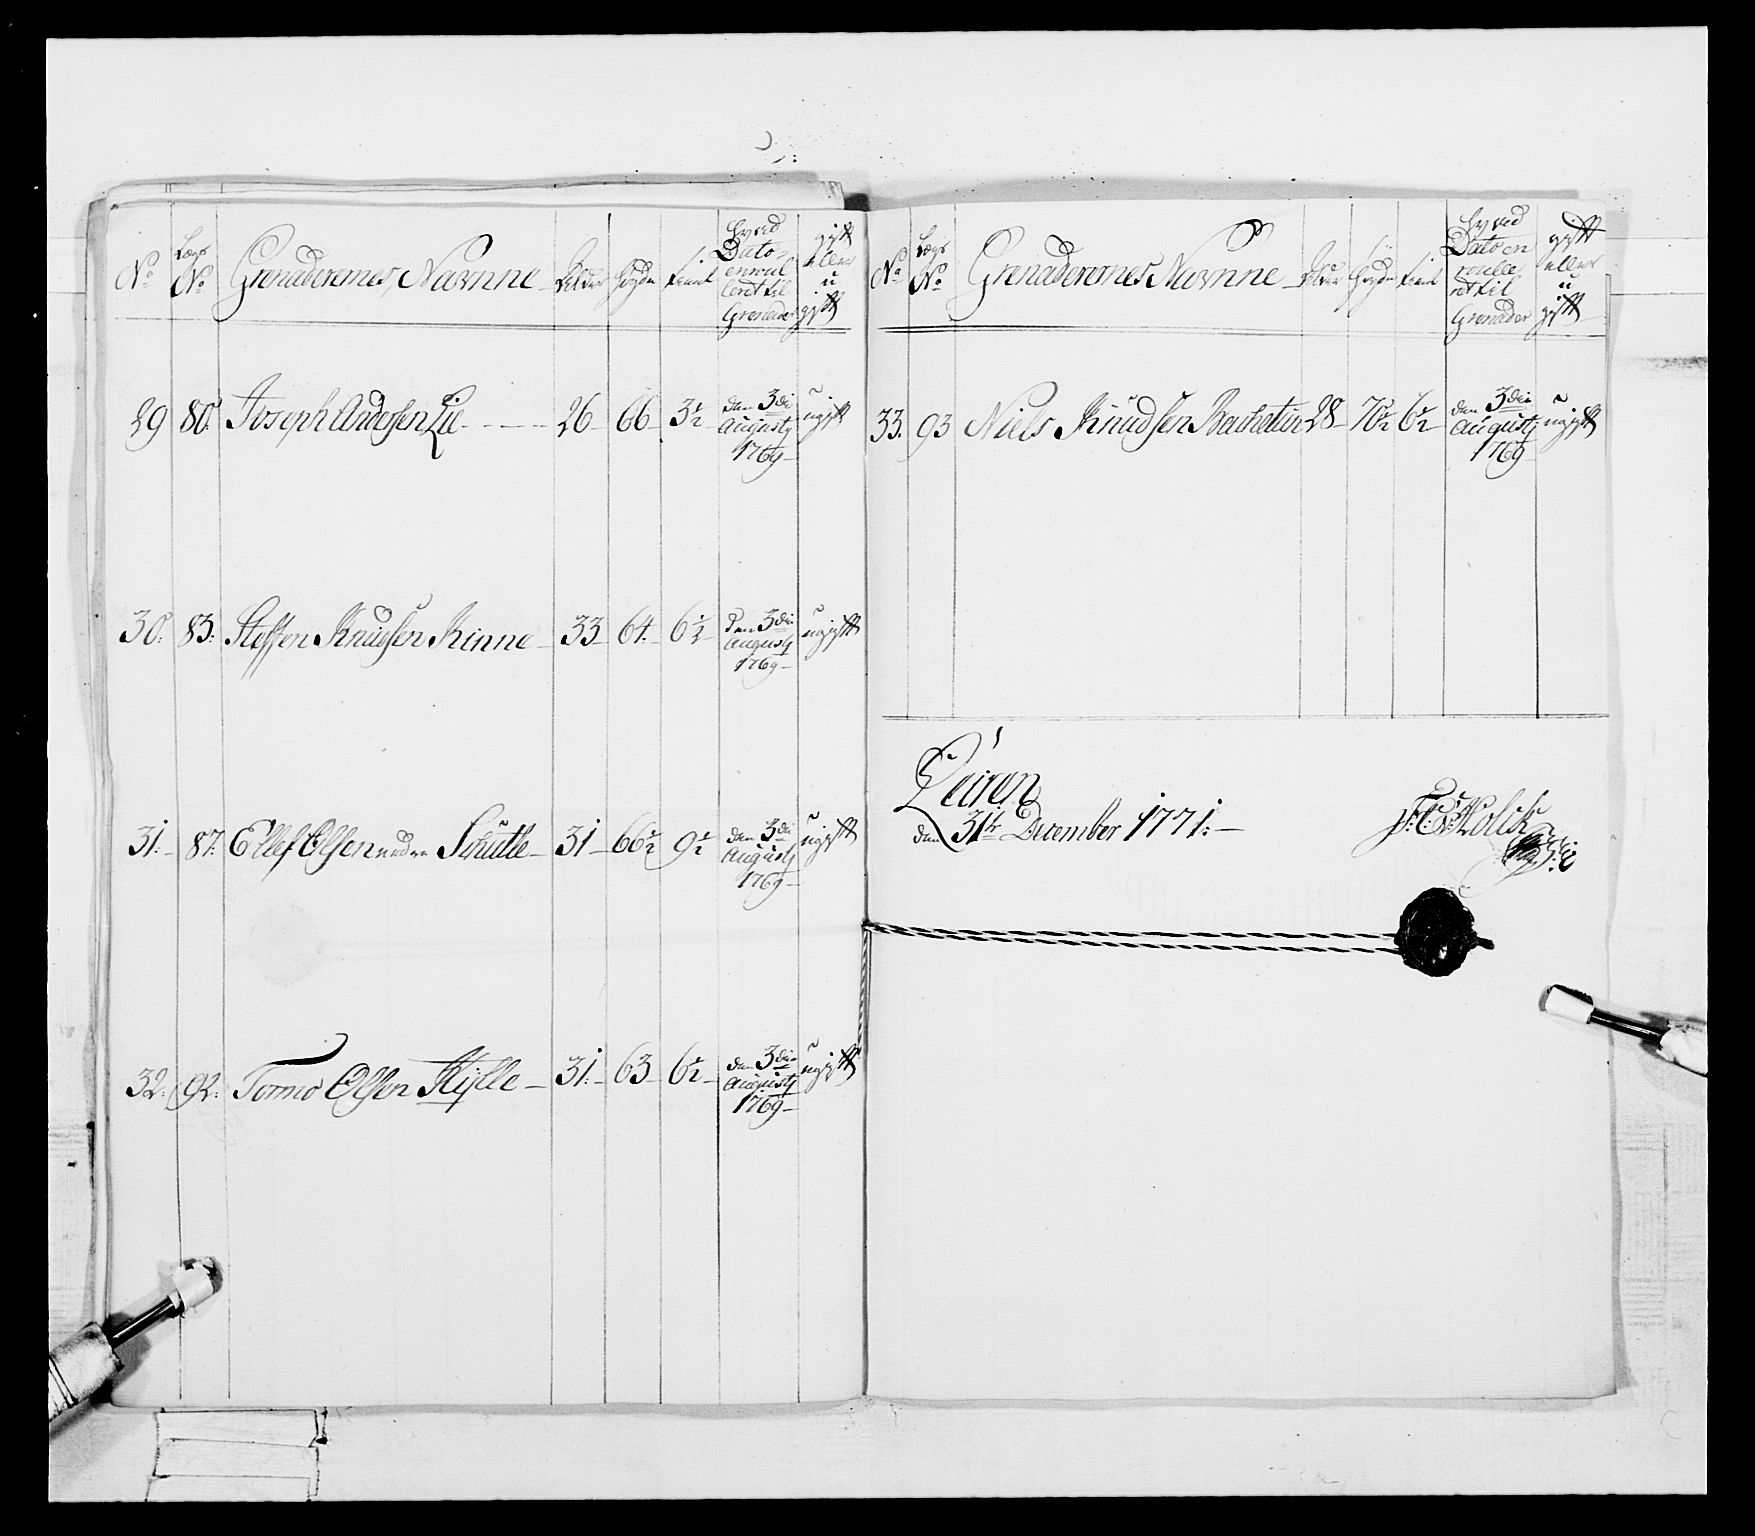 No
Lægs No
Grenaderernes Navnne
Alder
Høyde
tient
hvad Dato enroulleret til Grenader
gift eller ugift
29 80. Joseph Andersen Lie 26 66 3½ den 3die Augustj 1769 ugift
30. 83. Steffen Knudsen Kinne 33 64. 6½ den 3die Augustj 1769 ugift
31. 87. Ellef Olsen nedre Schutle 31 66½ 9½ den 3die Augustj 1769 ugift
32. 92. Tormo Olsen Kylle 31. 63 6½ den 3die Augustj 1769 ugift
No
Lægs No
Grenaderernes Navnne
Alder
Høyde
tient
hvad Dato enroulleret til Grenader
gift eller ugift
33. 93 Niels Knudsen 28 70½ 6½ den 3die Augustj 1769 ugift
Leiren
den 31te December 1771.
F:C:v:Holck